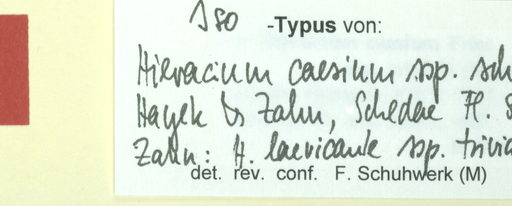 Iso -Typus von:
Hieracium caesium ssp. sch
Hayek & Zahn, Schedae Fl. S
Zahn: H. laevicaule ssp. trivia
det. rev. conf. F. Schuhwerk (M)